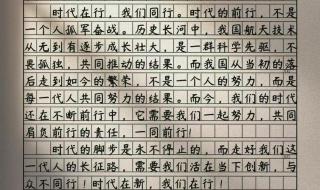 时代在行，我们同行。时代的前行，不是
一个人孤军奋战。历史长河中，我国航天技术
从无到有逐步成长壮大，是一群科学先驱，不
畏孤独，共同推动的结果。而我国从当初的落
后走到如今的繁荣，不是一个人的努力，而是
每一代人共同努力的结果。而今，我们的时代
还在不断前行中，它需要我们一起努力，共同
肩负前行的责任，一同前行！
时代的脚步是永不停止的，而走好我们这
一代人的长征路，需要我们活在当下创新，与
众不同行！时代在新，我们在行！